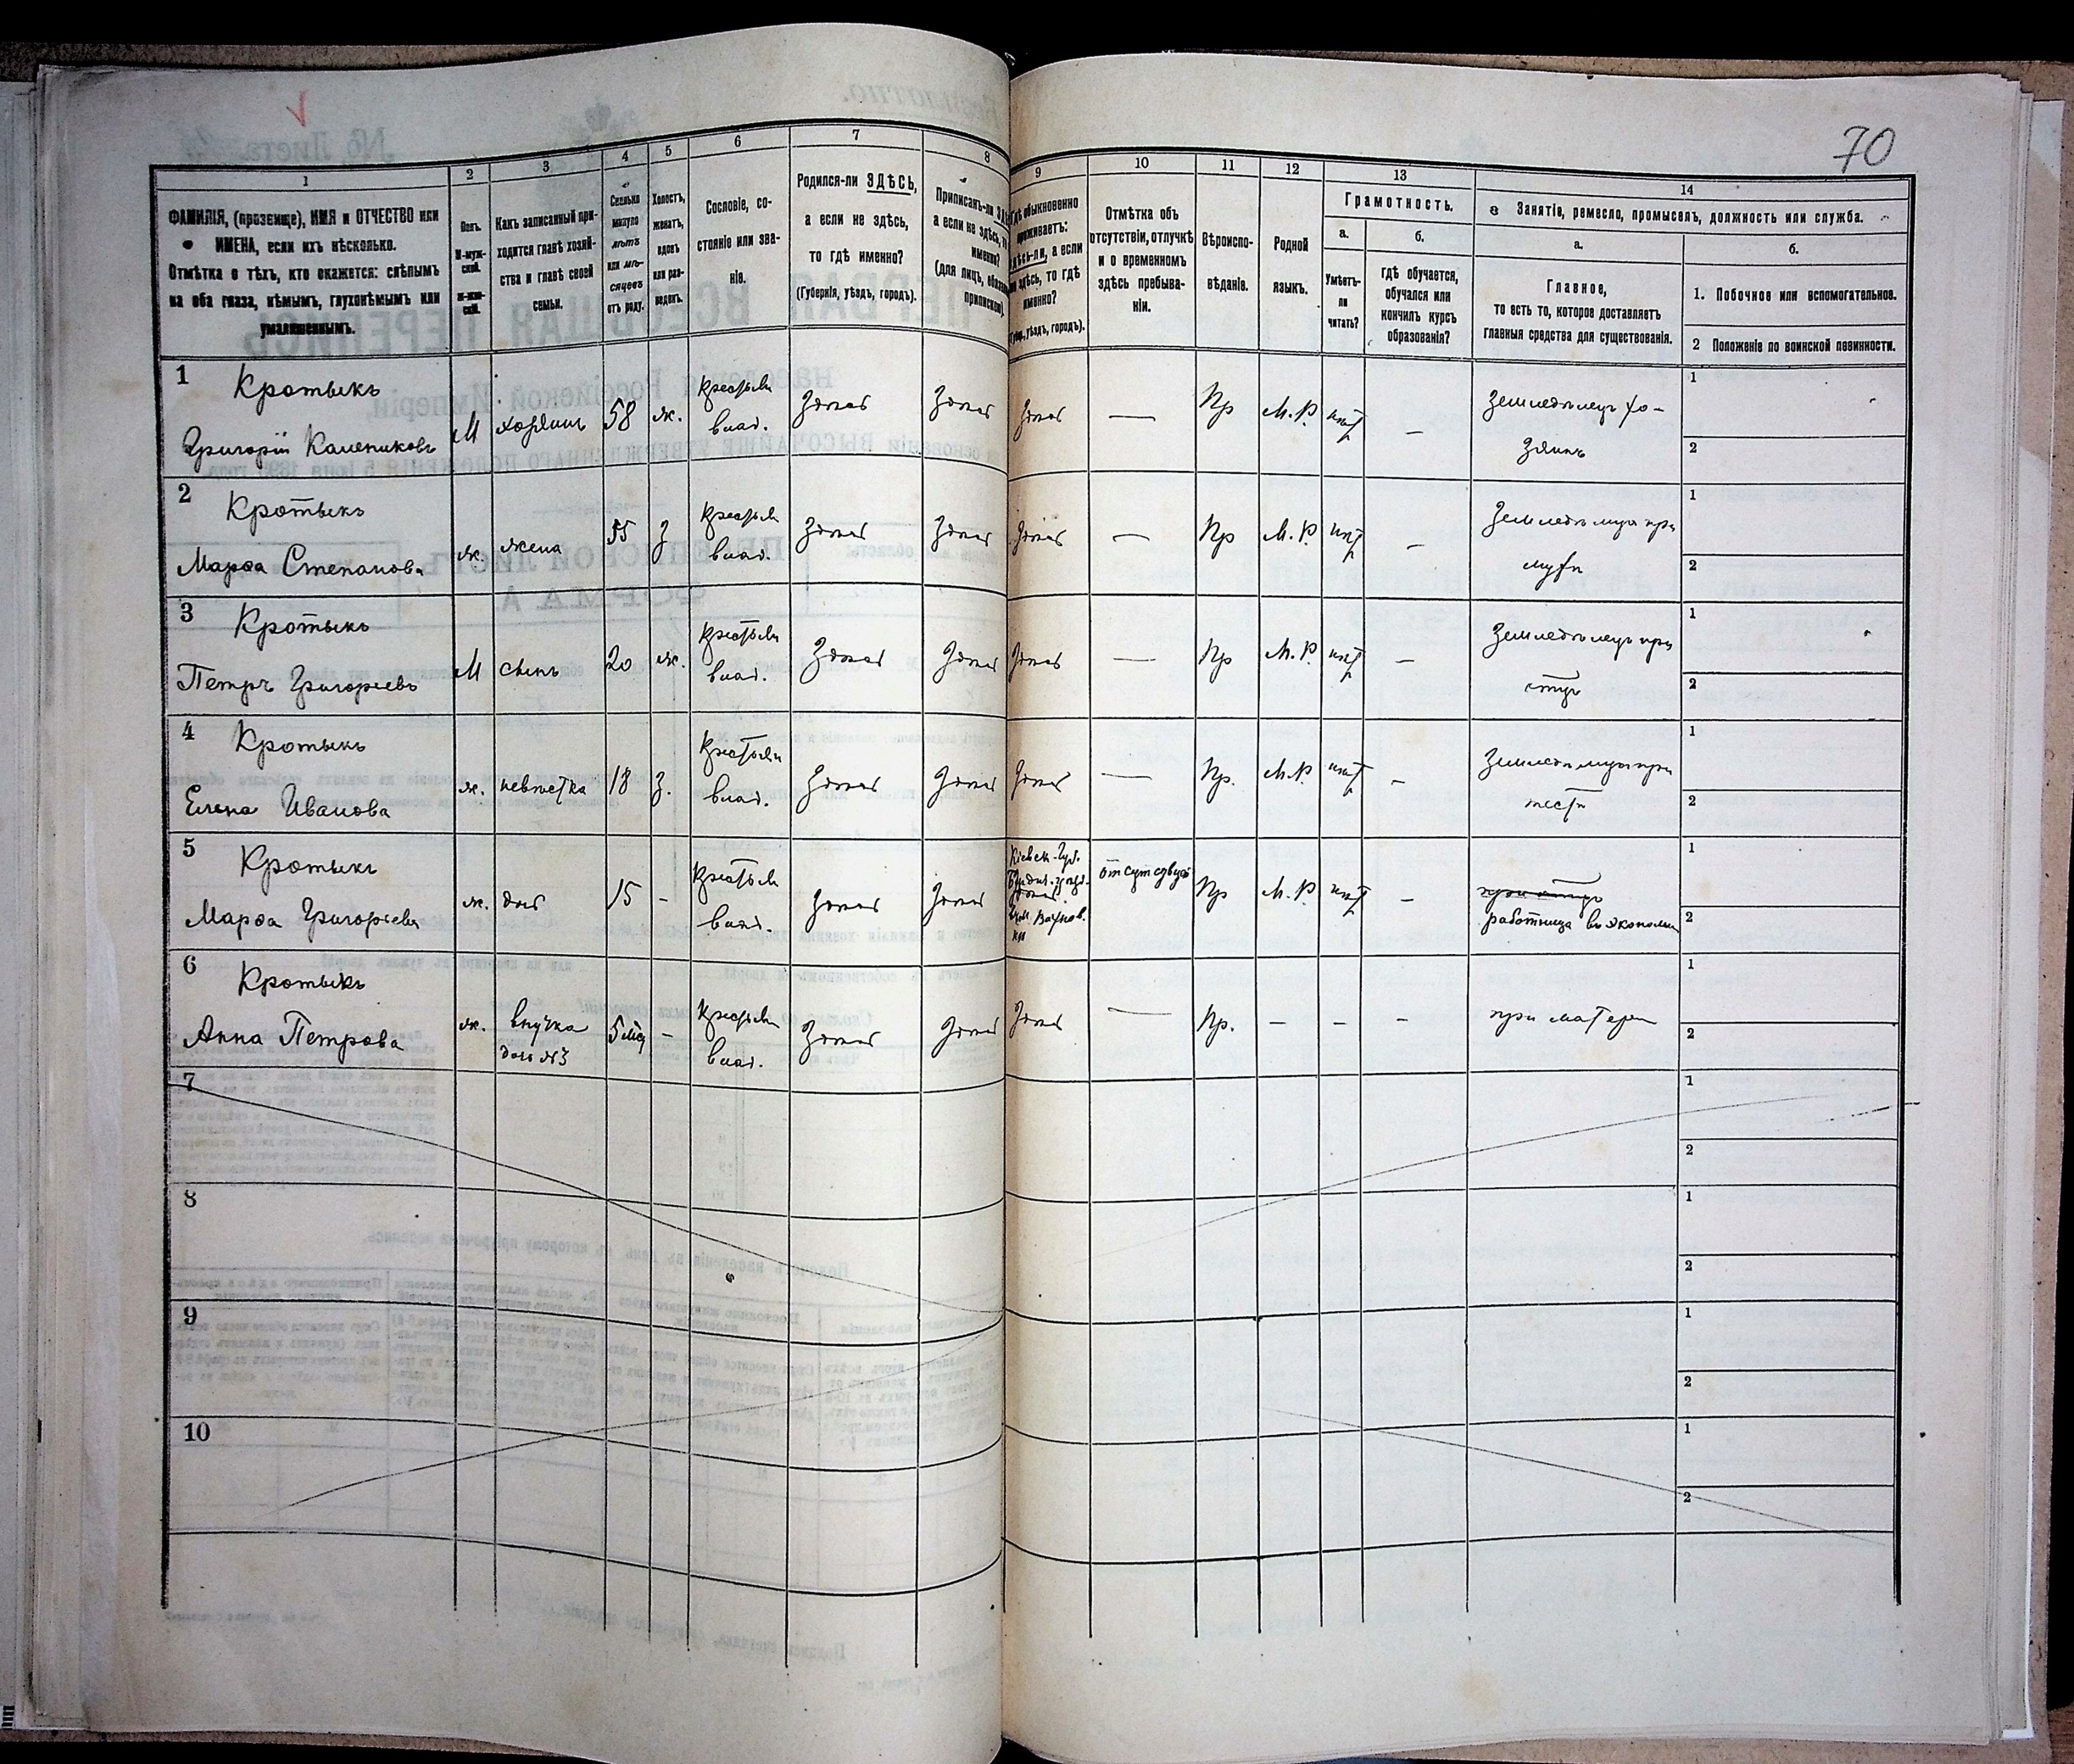 70
1
2
3
4
5
6
7
8
9
10
11
12
13
14
ФАМИЛІЯ, (прозвище), ИМЯ и ОТЧЕСТВО или
ИМЕНА, если ихъ нѣсколько.
Отмѣтка о тѣхъ, кто окажется: слѣпымъ
на оба глаза, нѣмымъ, глухонѣмымъ или
умалишеннымъ.
Полъ.
М-муж-
ской.
Ж-жен-
скій.
Какъ записанный при-
ходится главѣ хозяй-
ства и главѣ своей
семьи.
Сколько
минуло
лѣтъ
или мѣ-
сяцевъ
отъ роду.
Холостъ,
женатъ,
вдовъ
или раз-
веденъ.
Сословіе, со-
стояніе или зва-
ніе.
Родился-ли ЗДѢСЬ,
а если не здѣсь,
то гдѣ именно?
(Губернія, уѣздъ, городъ).
Приписанъ-ли
а если не здѣсь,
именно?
(для лицъ,
припискою).
обыкновенно
проживаетъ:
здѣсь-ли, а если
не здѣсь, то гдѣ
именно?
уѣздъ, городъ).
Отмѣтка объ
отсутствіи, отлучкѣ
и о временномъ
здѣсь пребыва-
ніи.
Вѣроиспо-
вѣданіе.
Родной
языкъ.
Грамотность.
а.
б.
Умѣетъ-
ли
читать?
гдѣ обучается,
обучался или
кончилъ курсъ
образованія?
Занятіе, ремесло, промыселъ, должность или служба.
а.
б.
Главное,
то есть то, которое доставляетъ
главныя средства для существованія.
1. Побочное или вспомогательное.
2 Положеніе по воинской повинности.
1 Кротыкъ
Григорій Калениковъ М хозяинъ 58 ж. крестьян влад. Здѣсь Здѣсь Здѣсь — Пр М.Р. нѣт — Земледѣлецъ хо-
зяинъ
1
2
2 Кротыкъ
Марѳа Степанова ж. жена 55 з крестьян влад. Здѣсь Здѣсь Здѣсь — Пр М.Р. нѣт — при
мужѣ
1
2
3 Кротыкъ
Петръ Григорьевъ М сынъ 20 ж. крестьян влад. Здѣсь Здѣсь Здѣсь — Пр М.Р. нѣт — Земледѣлецъ при
отцѣ
1
2
4 Кротыкъ
Елена Иванова ж. невѣстка 18 з. крестьян влад. Здѣсь Здѣсь Здѣсь — Пр. М.Р. нѣт — при
1
2
5 Кротыкъ
Марѳа Григорьева ж. дочь 15 - крестьян влад. Здѣсь Здѣсь Кіевск. Губ. Пр М.Р. нѣт — при отцѣ
работница въ экономіи
1
2
6 Кротыкъ
Анна Петрова ж. внучка 5 мѣс - крестьян влад. Здѣсь Здѣсь Здѣсь — Пр. - - - при матери
дочь №3
1
2
7
1
2
8
1
2
9
1
2
10
1
2